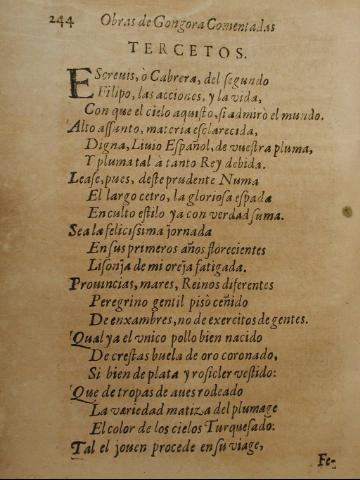 244 Obras de Gongora Comentadas
TERCETOS.
EScreuis, ò Cabrera, del segundo
Filipo, las acciones, y la vida,
Con que el cielo aquisto, si admirò el mundo.
Alto assunto, materia esclarecida,
Digna, Liuio Español, de vuestra pluma,
Y pluma tal à tanto Rey debida.
Lease, pues, deste prudente Numa
El largo cetro, la gloriosa espada
En culto estilo ya con verdad suma.
Sea la felicissima jornada
En sus primeros años florecientes
Lisonja de mi oreja fatigada.
Prouincias, mares, Reinos diferentes
Peregrino gentil pisò ceñido
De enxambres, no de exercitos de gentes.
Qual ya el vnico pollo bien nacido
De crestas buela de oro coronado,
Si bien de plata y rosicler vestido:
Que de tropas de aues rodeado
La variedad matiza del plumage
El color de los cielos Turquesado.
Tal el jouen procede en su viage,
Fe-